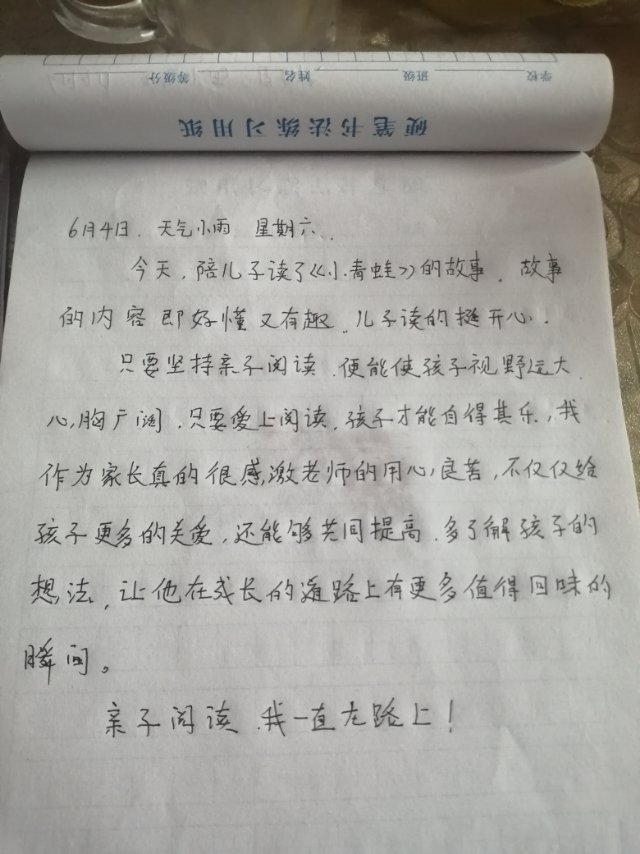 学校 班级 姓名 等级分
硬笔书法练习用纸
6月4日. 天气小雨 星期六.
今天,陪儿子读了《小青蛙》的故事. 故事
的内容即好懂又有趣.儿子读的挺开心.
只要坚持亲子阅读.便能使孩子视野远大.
心胸广阔.只要爱上阅读,孩子才能自得其乐,我
作为家长真的很感激老师的用心良苦,不仅仅给
孩子更多的关爱,还能够共同提高.多了解孩子的
想法,让他在成长的道路上有更多值得回味的
瞬间。
亲子阅读.我一直在路上!